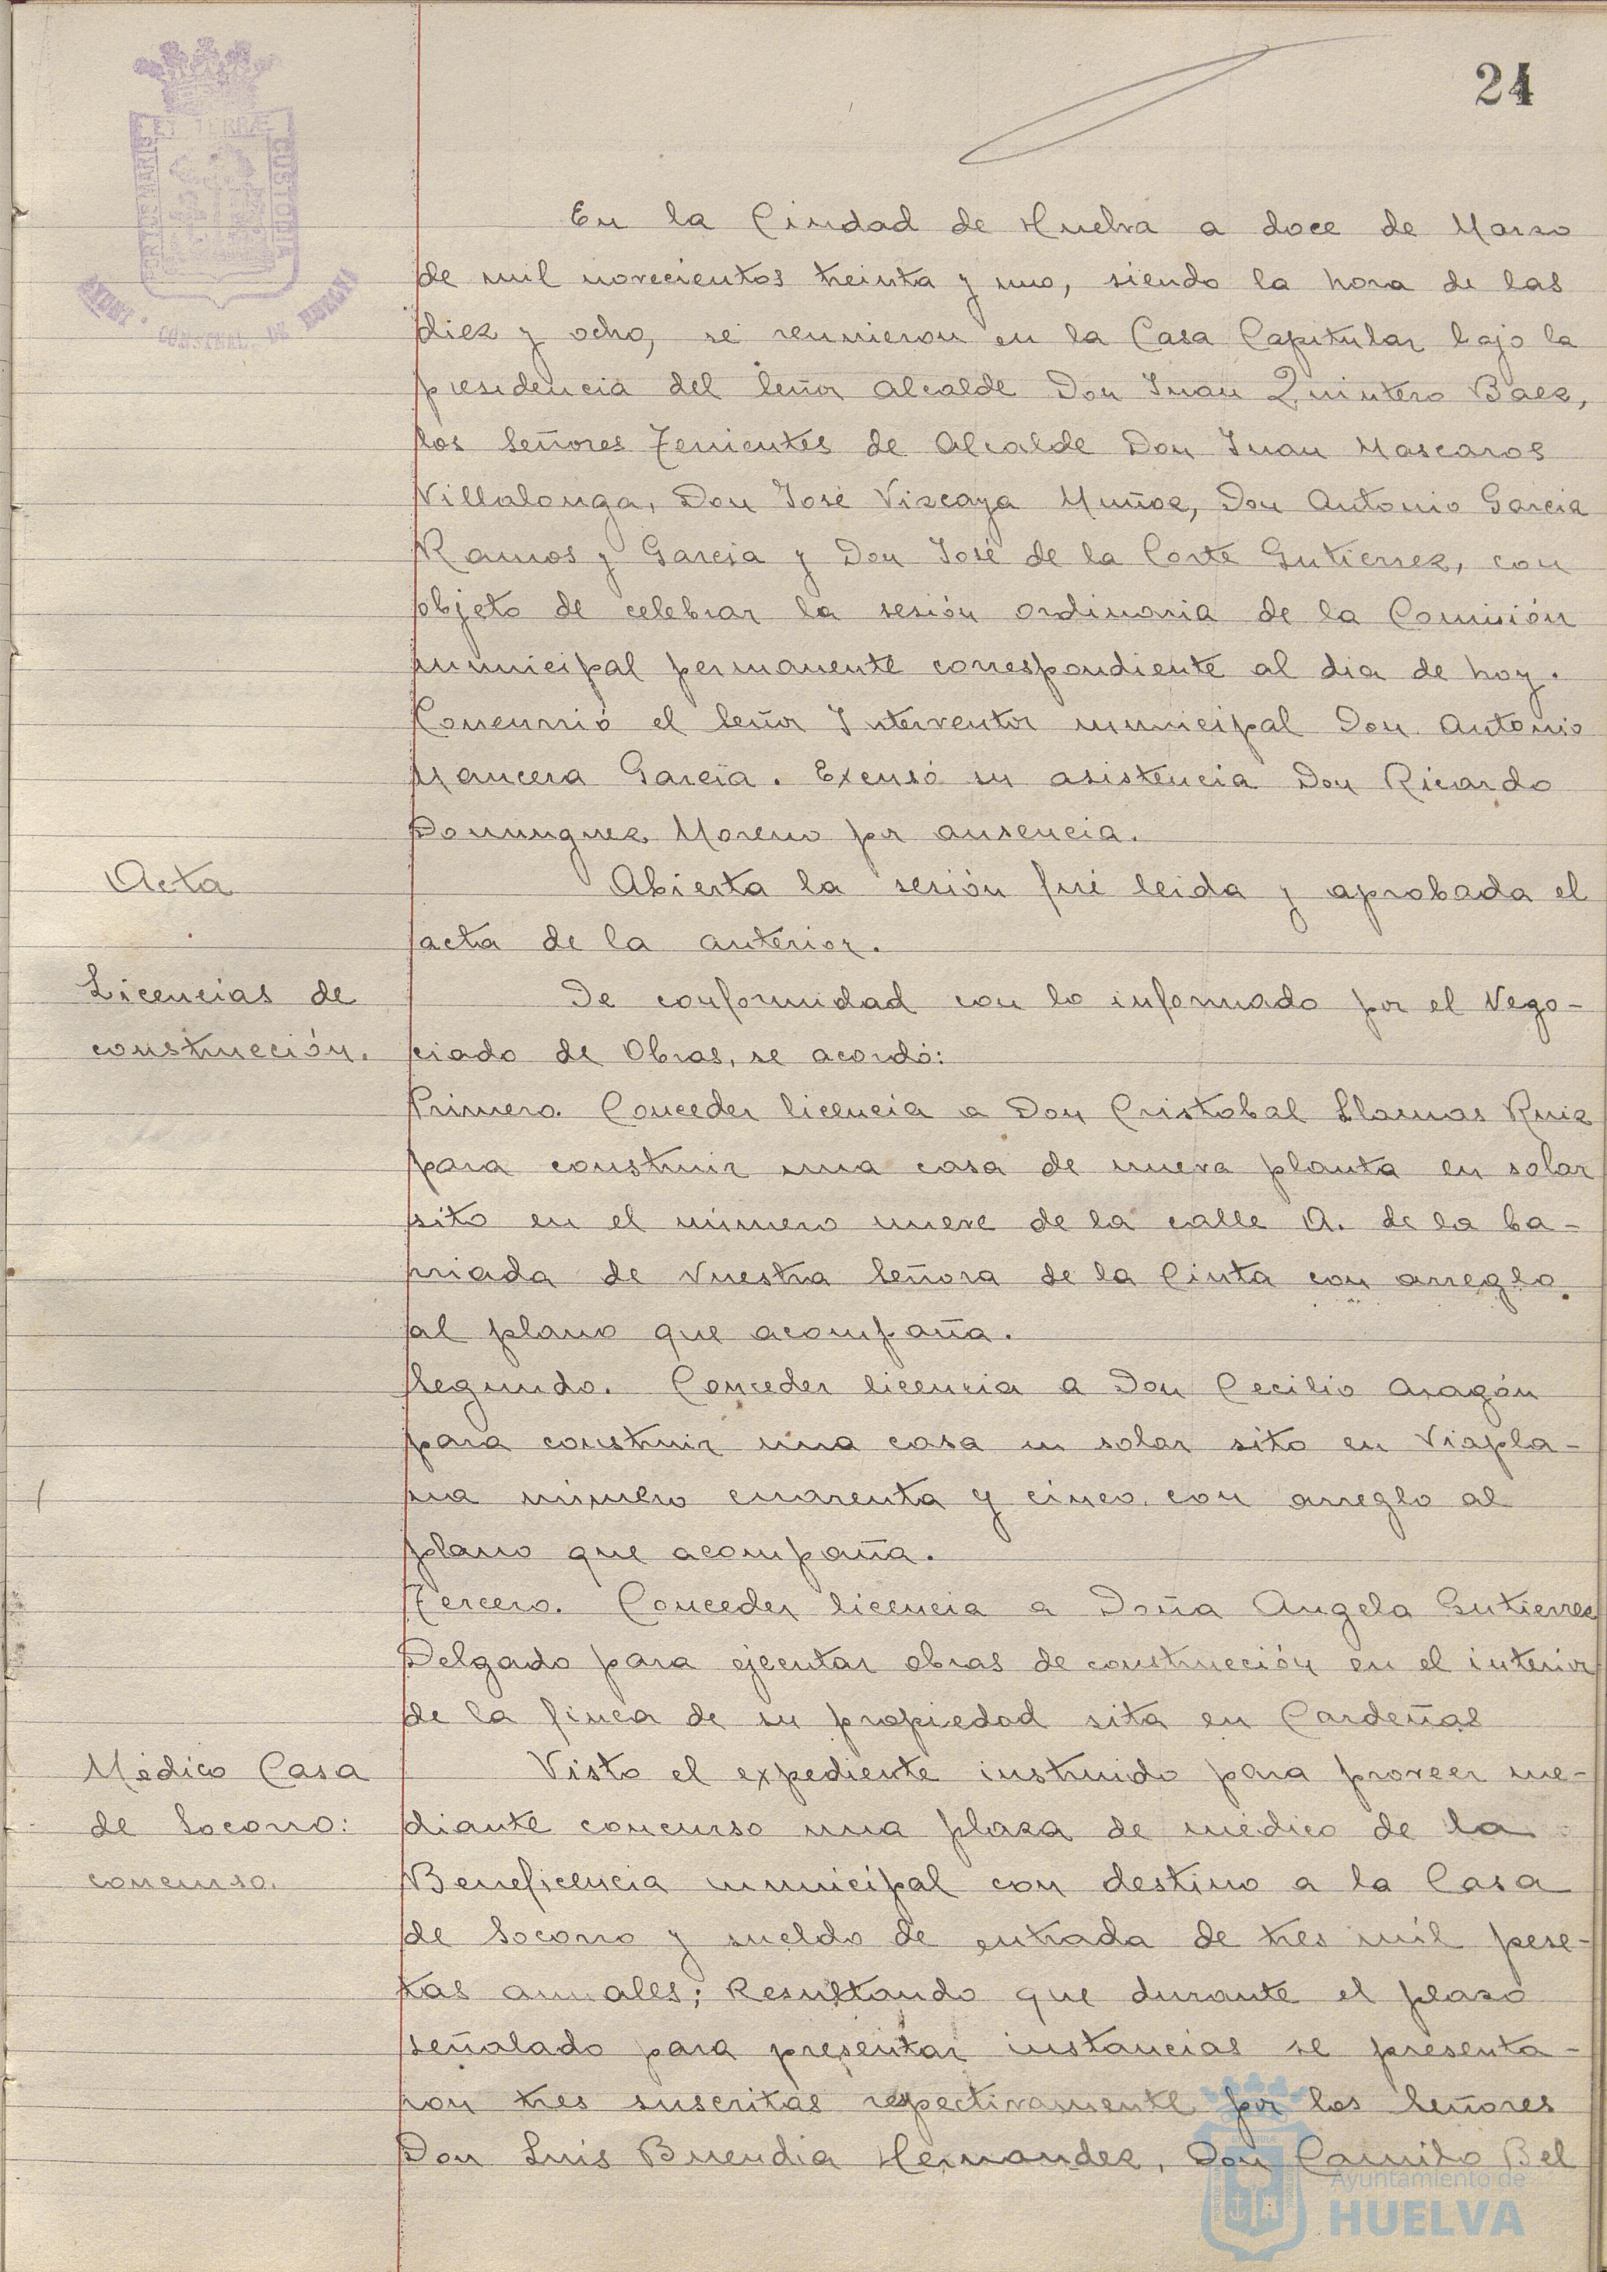 24
PORTUS MARIS
ET TERRÆ
CUSTODIA
AYUNT. CONSTNAL. DE HUELVA
En la Ciudad de Huelva a doce de Marzo
de mil novecientos treinta y uno, siendo la hora de las
diez y ocho, se reunieron en la Casa Capitular bajo la
presidencia del Señor Alcalde Don Juan Quintero Baez,
los Señores Tenientes de Alcalde Don Juan Mascaros
Villalonga, Don José Vizcaya Muñoz, Don Antonio Garcia
Ramos y Garcia y Don José de la Corte Gutierrez, con
objeto de celebrar la sesión ordinaria de la Comisión
municipal permanente correspondiente al dia de hoy.
Concurrió el Señor Interventor municipal Don Antonio
Mancera Garcia. Excusó su asistencia Don Ricardo
Dominguez Moreno por ausencia.
Acta
Abierta la sesión fué leida y aprobada el
acta de la anterior.
Licencias de
construcción.
De conformidad con lo informado por el Nego-
ciado de Obras, se acordó:
Primero. Conceder licencia a Don Cristobal Llamas Ruiz
para construir una casa de nueva planta en solar
sito en el número nueve de la calle A. de la ba-
rriada de Nuestra Señora de la Cinta con arreglo
al plano que acompaña.
Segundo. Conceder licencia a Don Cecilio Aragón
para construir una casa en solar sito en Viapla-
na número cuarenta y cinco con arreglo al
plano que acompaña.
Tercero. Conceder licencia a Doña Angela Gutierrez
Delgado para ejecutar obras de construcción en el interior
de la finca de su propiedad sita en Cardeñas
Médico Casa
de Socorro:
concurso.
Visto el expediente instruido para proveer me-
diante concurso una plaza de médico de la
Beneficencia municipal con destino a la Casa
de Socorro y sueldo de entrada de tres mil pese-
tas anuales; Resultando que durante el plazo
señalado para presentar instancias se presenta-
ron tres suscritas respectivamente por los Señores
Don Luis Buendia Hernandez, Don Camilo Bel
Ayuntamiento de
HUELVA